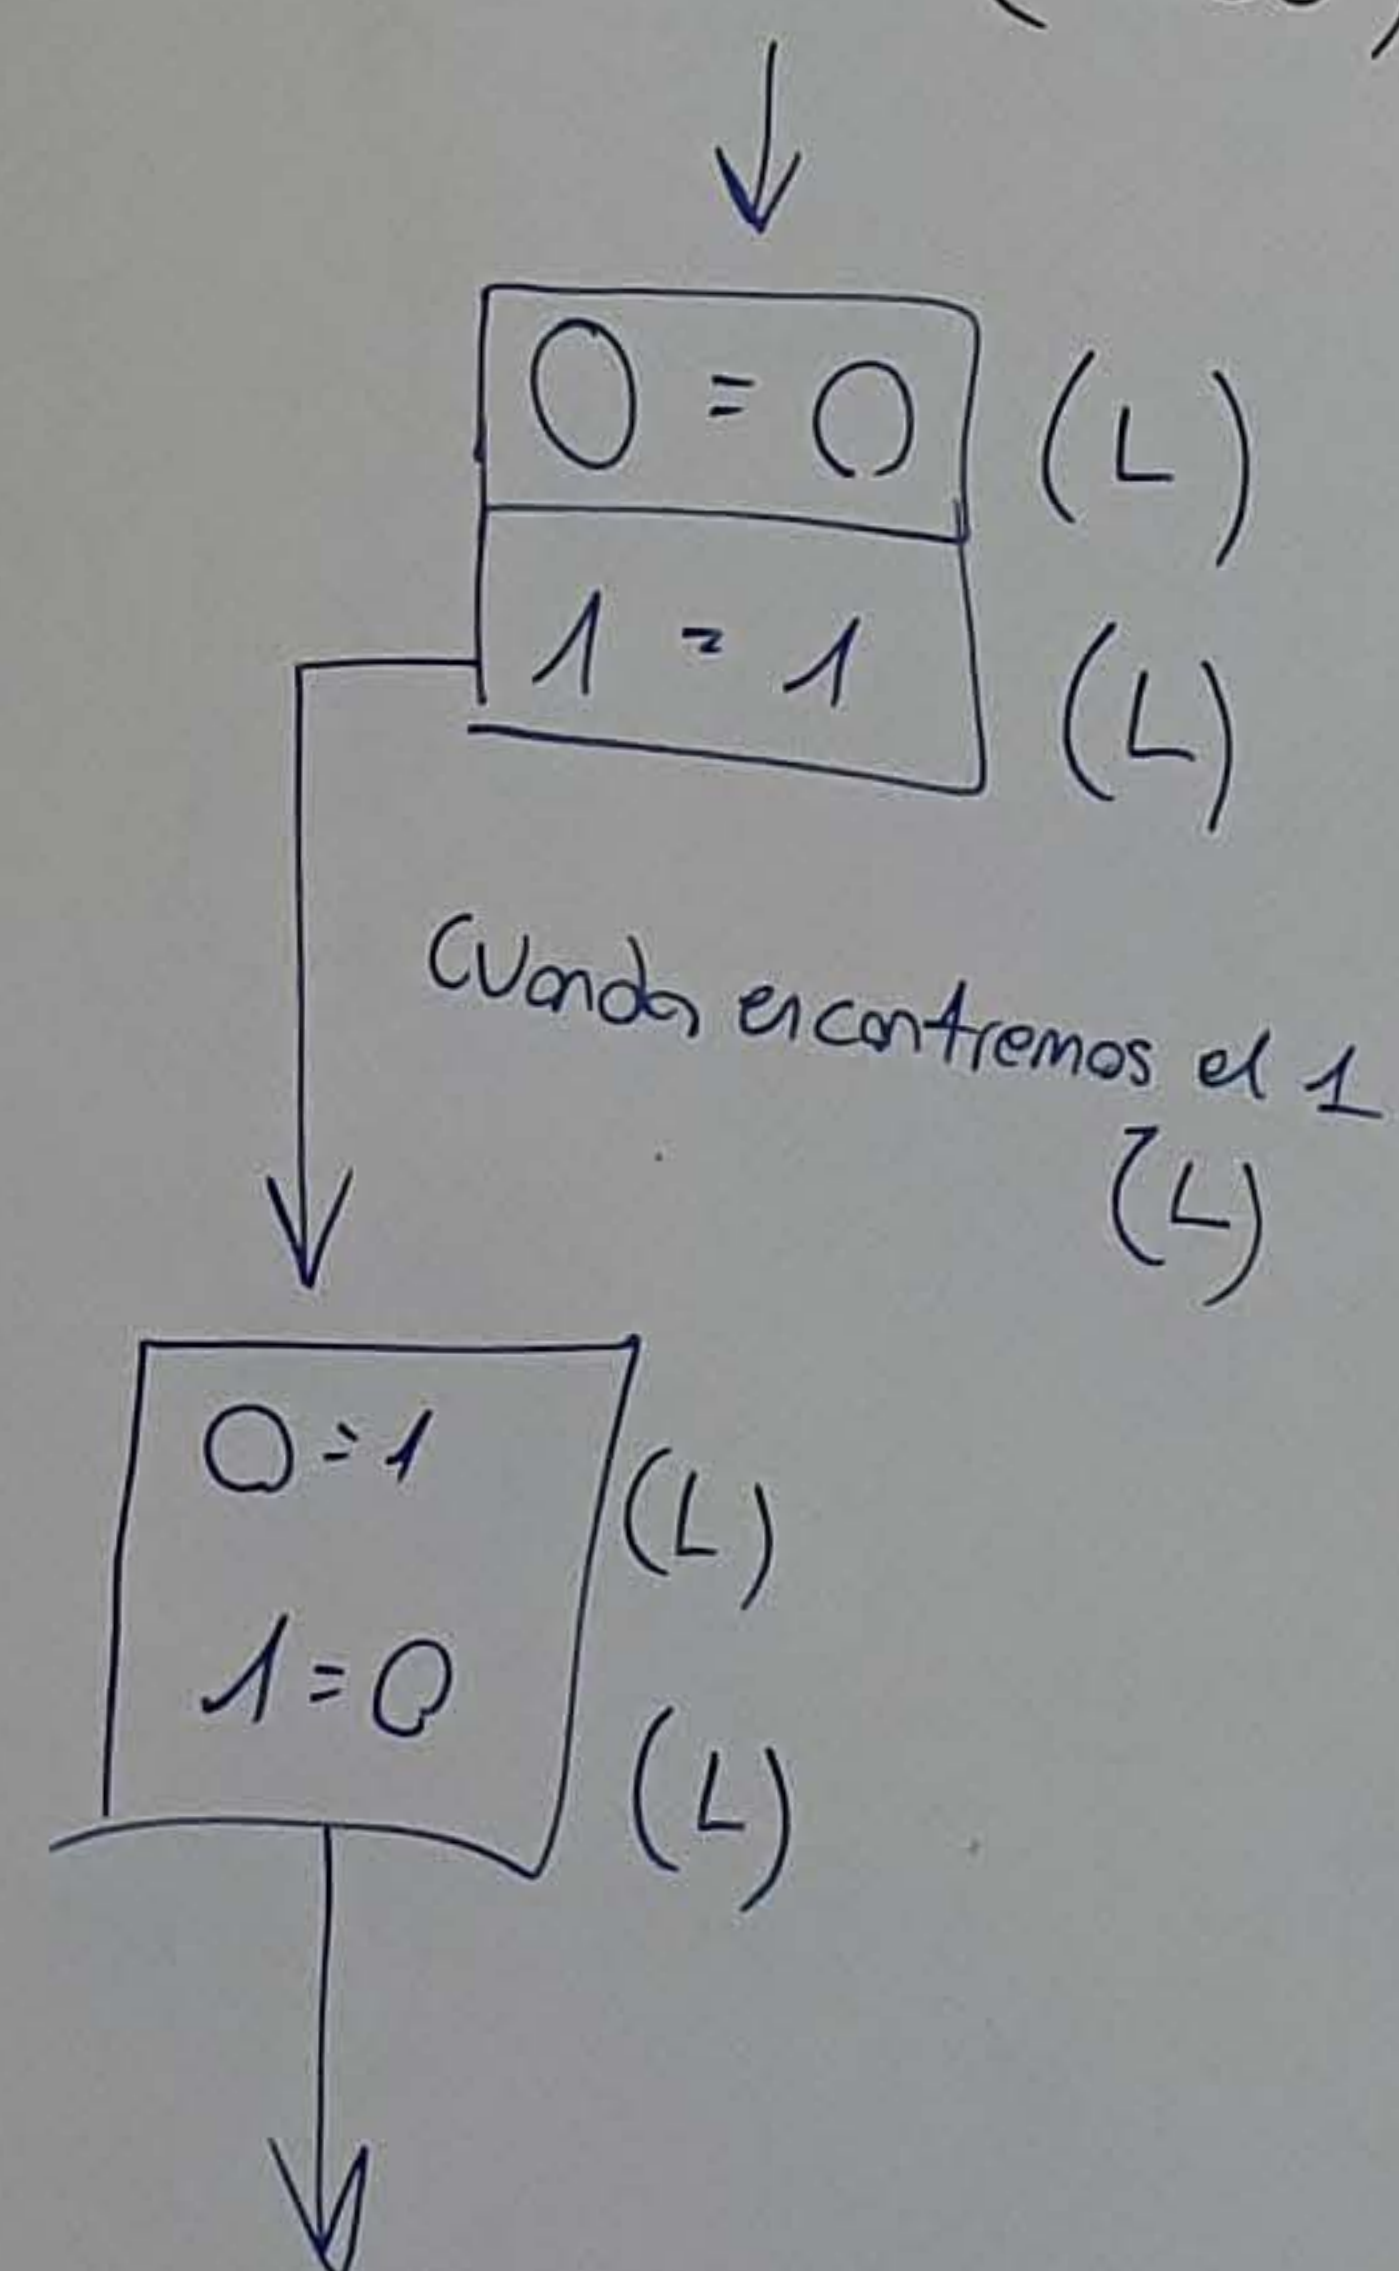 0 = 0 (L)
1 = 1 (L)
Cuando encontremos el 1
(L)
0 = 1 (L)
1 = 0 (L)